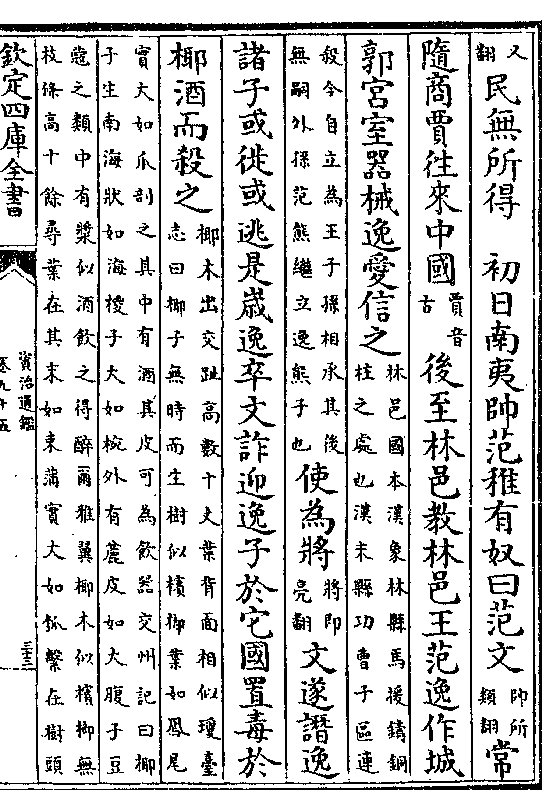 又翻民無所得　初日南夷帥范稚有奴曰范文帥所類翻常
隨商賈往來中國賈音古後至林邑教林邑王范逸作城
郭宮室器械逸愛信之林邑國本漢象林縣馬援鑄銅柱之處也漢末縣功曹子區連
殺令自立為王子孫相承其後無嗣外孫范熊繼立逸熊子也使為將將即亮翻文遂譖逸
諸子或徙或逃是歲逸卒文詐迎逸子於它國置毒於
椰酒而殺之椰木出交趾高數十丈葉背面相似瓊臺志曰椰子無時而生樹似檳榔葉如鳳尾
實大如瓜剖之其中有酒其皮可為飲器交州記曰椰子生南海狀如海椶子大如椀外有麄皮如大腹子豆
蔻之類中有漿似酒飲之得醉爾雅翼椰木似檳榔無枝條高十餘尋葉在其末如束蒲實大如瓠繫在樹頭
欽定四庫全書
資治通鑑
卷九十五
三十三